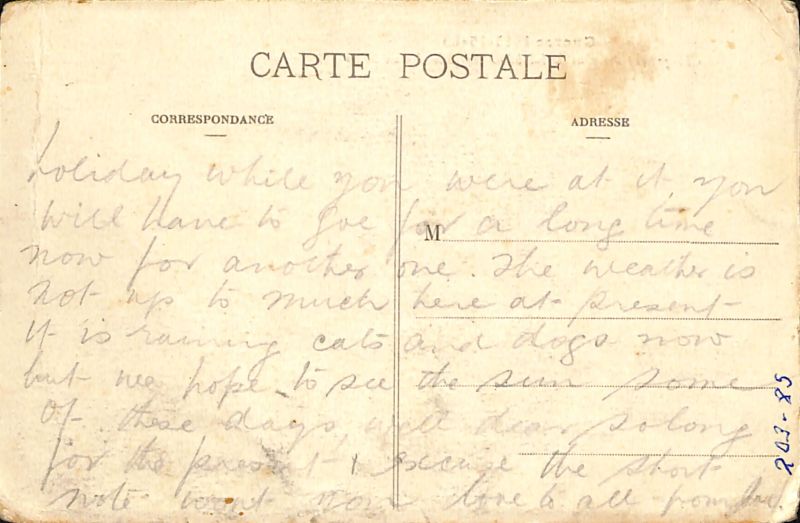 CARTE POSTALE
CORRESPONDANCE
ADRESSE
M
holiday while you were at it, you
will have to goe for a long time
now for another one. The weather is
not up to much here at present
it is raining cats and dogs now
but we hope to see the sun some
of these days, well dear so long
for the present & excuse the short
note wont now love to all from
203-85